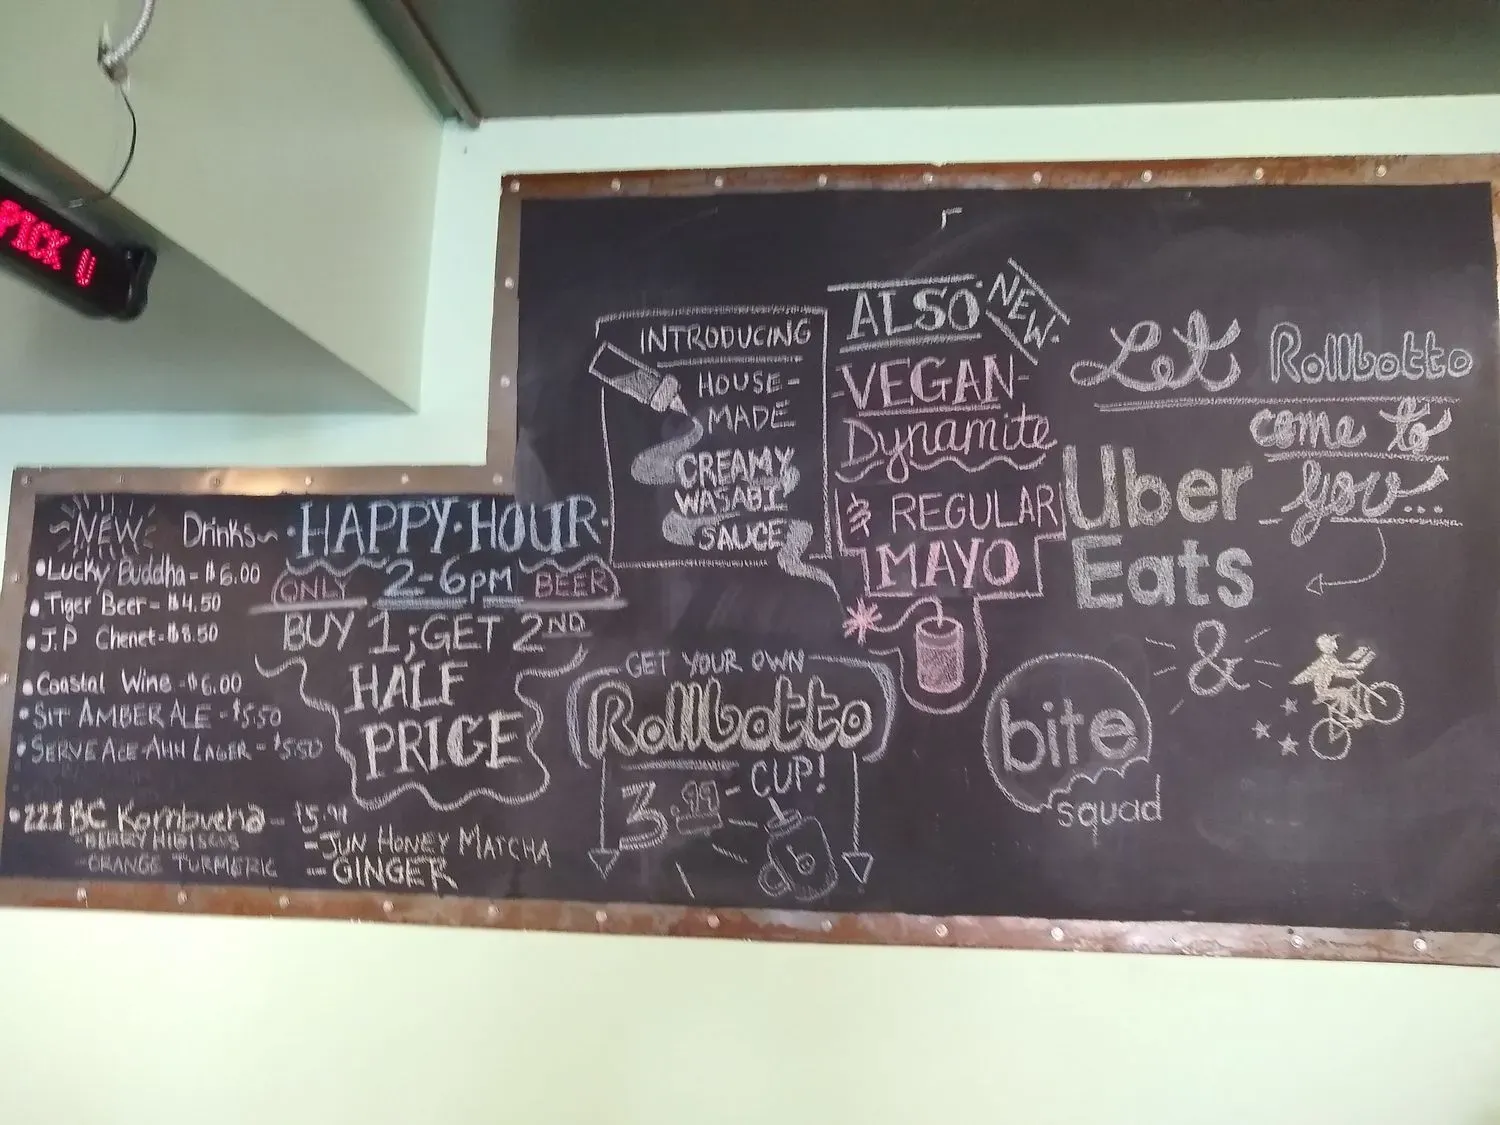 PICK U
NEW Drinks
Lucky Buddha - $6.00
Tiger Beer - $4.50
J.P Chenet - $8.50
Coastal Wine - $6.00
SIT AMBER ALE - $5.50
SERVE ACE-AHH LAGER - $5.50
221 BC Kombucha - $5.99
- BERRY HIBISCUS
- ORANGE TURMERIC
- JUN HONEY MATCHA
- GINGER
HAPPY HOUR
ONLY 2-6PM BEER
BUY 1; GET 2ND
HALF
PRICE
INTRODUCING
HOUSE-
MADE
CREAMY
WASABI
SAUCE
ALSO NEW
VEGAN
Dynamite
& REGULAR
MAYO
GET YOUR OWN
Rollbotto
3.99 - CUP!
b
Let Rollbotto
come to
you...
Uber
Eats
&
bite
squad